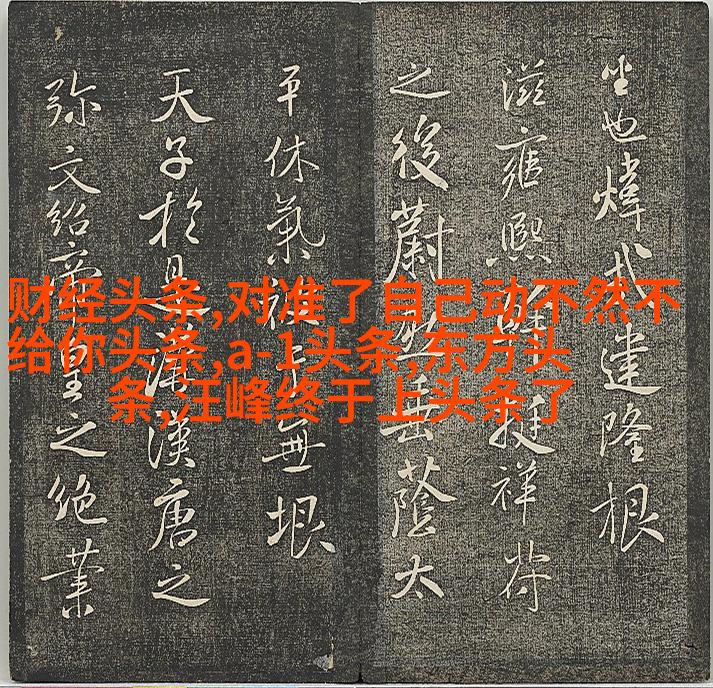 财经头条,对准了自己动不然不
给你头条,a-1头条,东方头
条,汪峰终于上头条了
也煒建隆根
滋雍熙挺祥符
之後蔚然垂蔭太
平休氣無垠
天子於是漢唐之
弥文紹皇之絶業